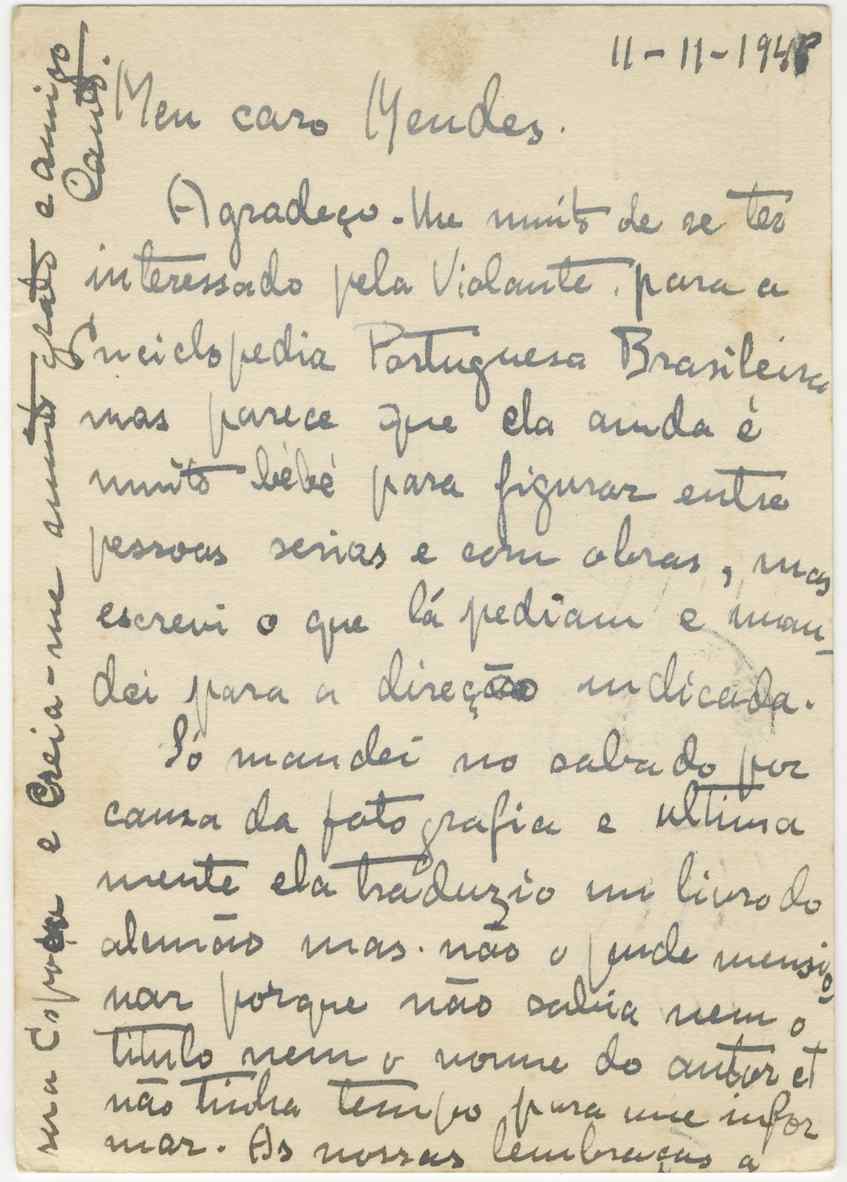 11-11-1948
Meu caro Mendes.
Agradeço-me muito de se ter
interessado pela Violante, para a
Enciclopedia Portuguesa Brasileira
mas parece que ela ainda é
muito bébé para figurar entre
pessoas serias e com obras, mas
escrevi o que lá pediam e man-
dei para a direção indicada.
Só mandei no sabado por
causa da fotografia e ultima
mente ela traduzio um livro do
alemão mas não o pude mensio-
nar porque não sabia nem o
titulo nem o nome do autor et
não tinha tempo para me infor
mar. As nossas lembraças a
sua Esposa e Creia-me muito grato e amigo